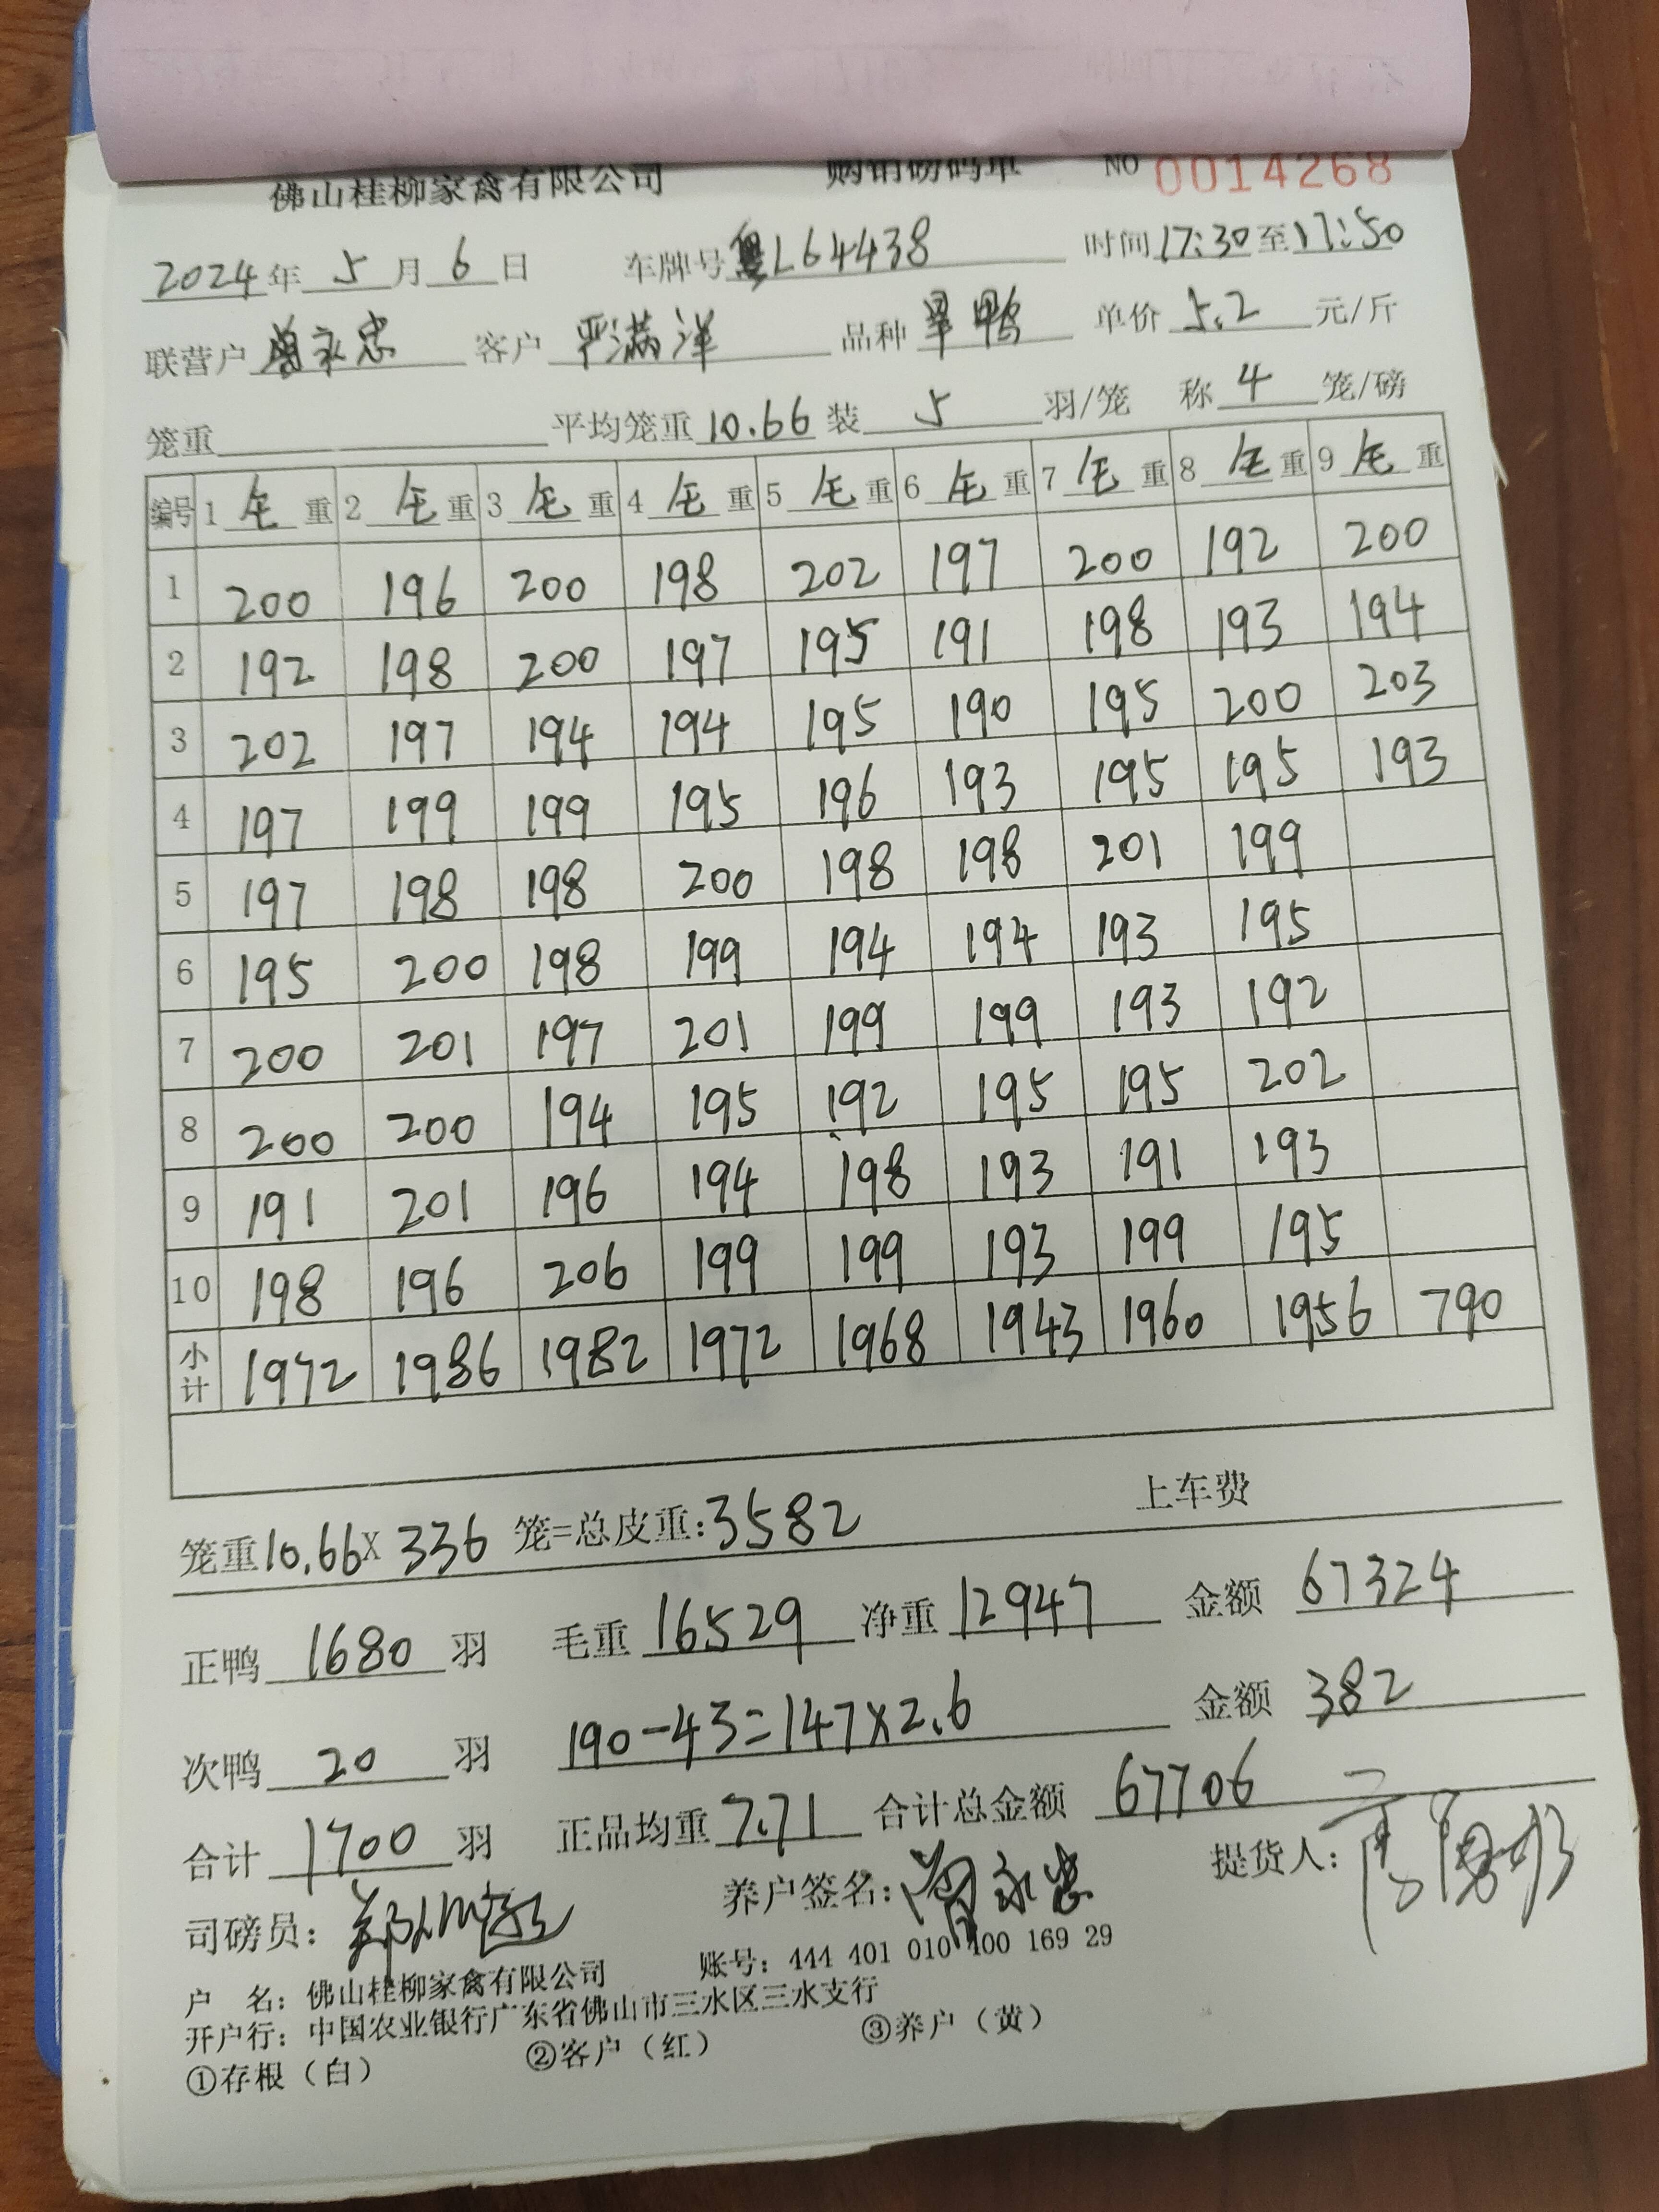 佛山桂柳家禽有限公司 购销磅码单 NO 0014268
2024年 5 月 6 日 车牌号 粤L64438 时间 17:30 至 17:50
联营户 曾永忠 客户 严满洋 品种 旱鸭 单价 5.2 元/斤
笼重 平均笼重 10.66 装 5 羽/笼 称 4 笼/磅
编号 1 毛 重 2 毛 重 3 毛 重 4 毛 重 5 毛 重 6 毛 重 7 毛 重 8 毛 重 9 毛 重
1 200 196 200 198 202 197 200 192 200
2 192 198 200 197 195 191 198 193 194
3 202 197 194 194 195 190 195 200 203
4 197 199 199 195 196 193 195 195 193
5 197 198 198 200 198 198 201 199
6 195 200 198 199 194 194 193 195
7 200 201 197 201 199 199 193 192
8 200 200 194 195 192 195 195 202
9 191 201 196 194 198 193 191 193
10 198 196 206 199 199 193 199 195
小计 1972 1986 1982 1972 1968 1943 1960 1956 790
笼重10.66X 336 笼=总皮重:3582 上车费
正鸭 1680 羽 毛重 16529 净重 12947 金额 67324
次鸭 20 羽 190-43=147×2.6 金额 382
合计 1700 羽 正品均重 7.71 合计总金额 67706
司磅员: 养户签名: 曾永忠 提货人:
户 名: 佛山桂柳家禽有限公司 账号: 444 401 010 400 169 29
开户行: 中国农业银行广东省佛山市三水区三水支行
①存根（白） ②客户（红） ③养户（黄）